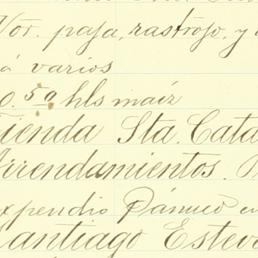 Por. paja, rastrojo, y
á varios
0.50 hls maíz
Tienda Sta. Cata
Arrendamientos.
Expendio Pánuco en
Santiago Estev